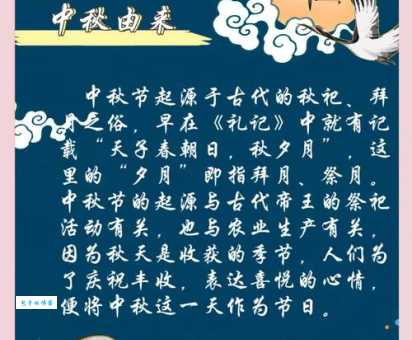 中秋由来
中秋节起源于古代的秋祀、拜
月之俗，早在《礼记》中就有记
载“天子春朝日，秋夕月”，这
里的“夕月”即指拜月、祭月。
中秋节的起源与古代帝王的祭祀
活动有关，也与农业生产有关，
因为秋天是收获的季节，人们为
了庆祝丰收，表达喜悦的心情，
便将中秋这一天作为节日。